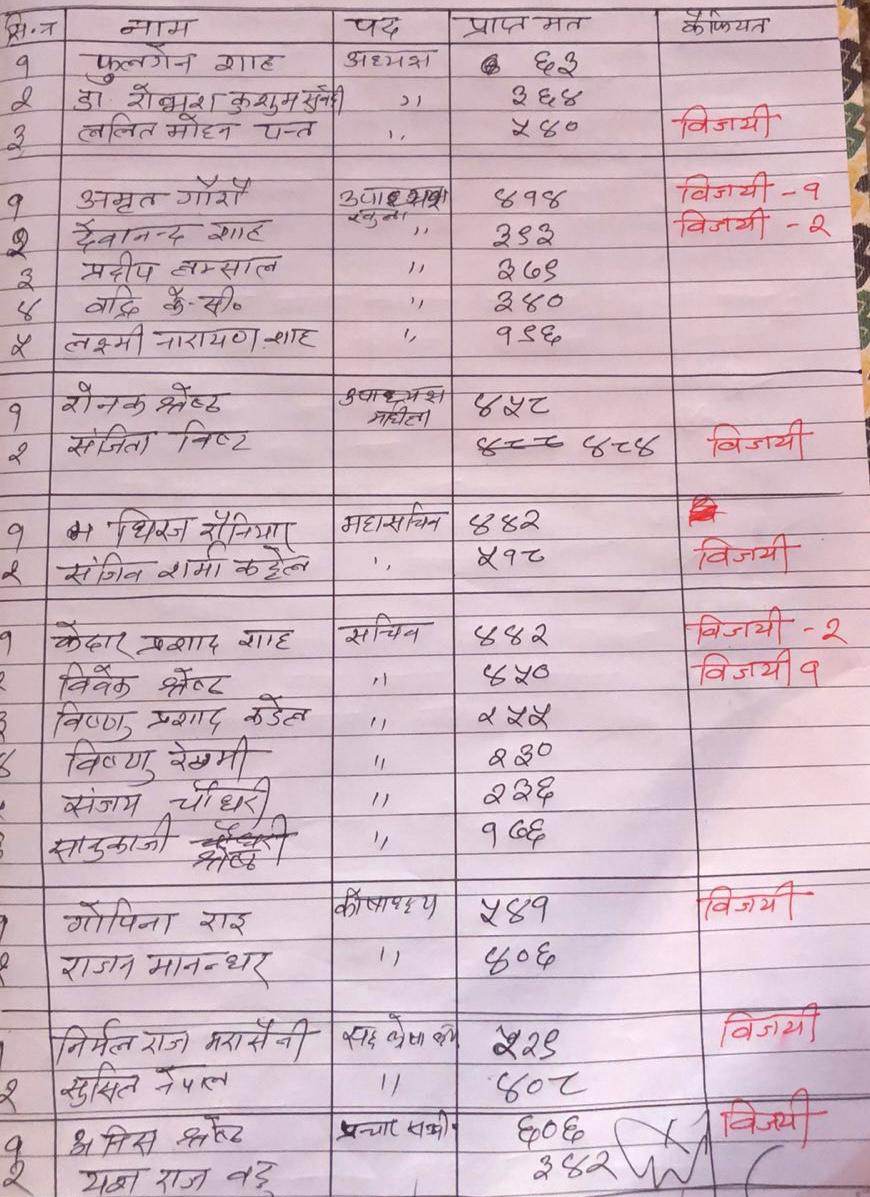 सि.न नाम पद प्राप्त मत कैफियत
१ फुलगेन शाह अध्यक्ष ६३
२ डा. कुशुम सुवेदी ,, ३६४
३ ललित मोहन पन्त ,, ५४० विजयी
१ अमृत गौरौ उपाध्यक्ष ४१४ विजयी - १
खुला
२ देवानन्द शाह ,, ३९३ विजयी - २
३ प्रदीप लम्साल ,, ३७९
४ वद्रि के.सी. ,, ३४०
५ लक्ष्मी नारायण शाह ,, १९६
१ रोनक श्रेष्ठ उपाध्यक्ष ४५८
महिला
२ संजिता विष्ट ४८८ ४८४ विजयी
१ धिरज सैनियार महासचिव ४४२
२ संजिव शर्मा कडेल ,, ५१८ विजयी
१ केदार प्रशाद शाह सचिव ४४२ विजयी - २
२ विवेक श्रेष्ट ,, ४५० विजयी १
३ विष्णु प्रशाद कडेल ,, २५५
४ विष्णु रेखमी ,, २३०
५ संजय चौधरी ,, २३६
सानुकाजी चौधरी ,, १७६
श्रेष्ठ
१ गोपिना राइ कोषाध्यक्ष ५४१ विजयी
२ राजन मानन्धर ,, ४०६
१ निर्मल राज मरासैनी सह कोषाध्यक्ष ५२९ विजयी
२ सुसित नेपाल ,, ४०८
१ अमिस श्रेष्ट प्रचार सचिव ६०६ विजयी
२ यक्ष राज वडु ३४२